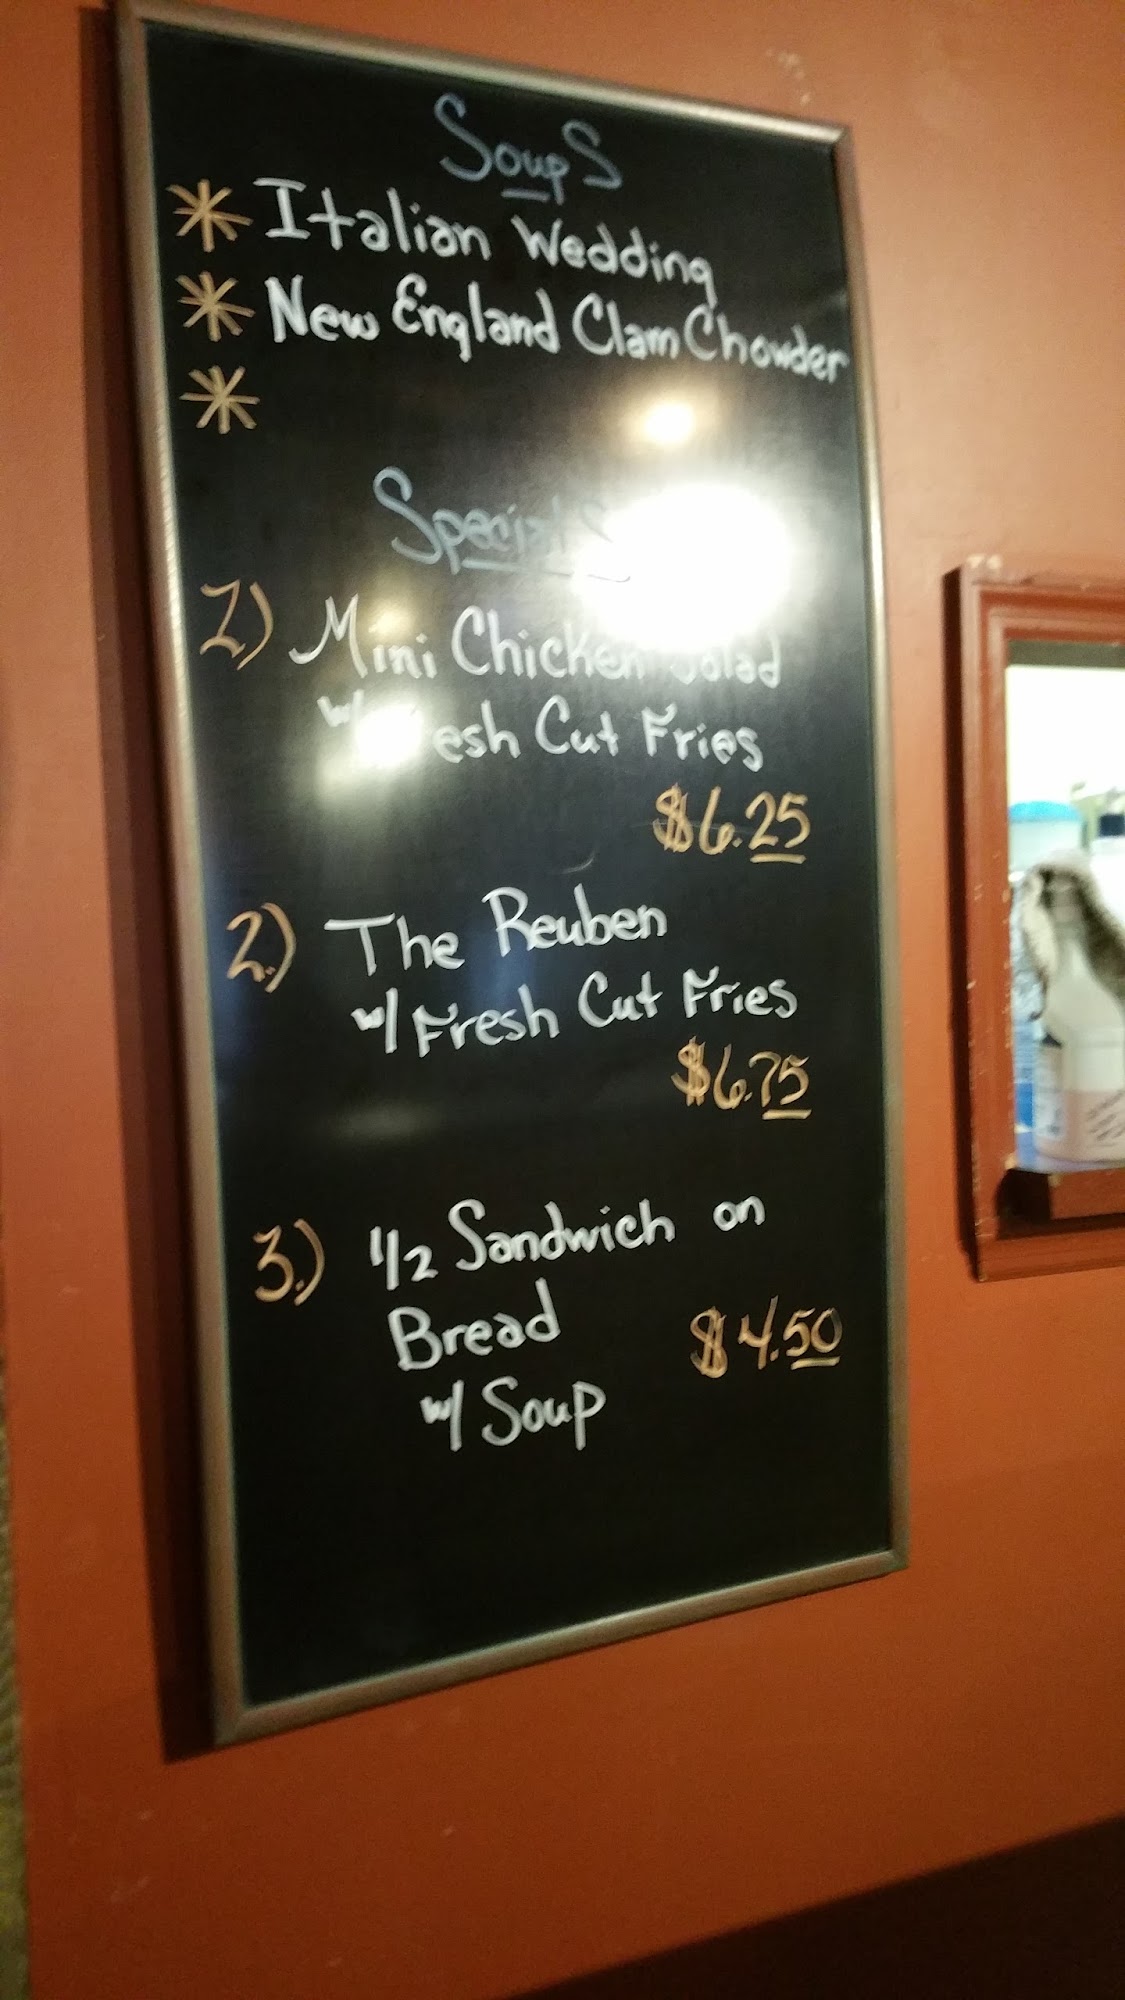 Soups
* Italian Wedding
* New England Clam Chowder
*
Specials
1) Mini Chicken Salad
w/ Fresh Cut Fries
$6.25
2.) The Reuben
w/ Fresh Cut Fries
$6.75
3.) 1/2 Sandwich on
Bread $4.50
w/ Soup